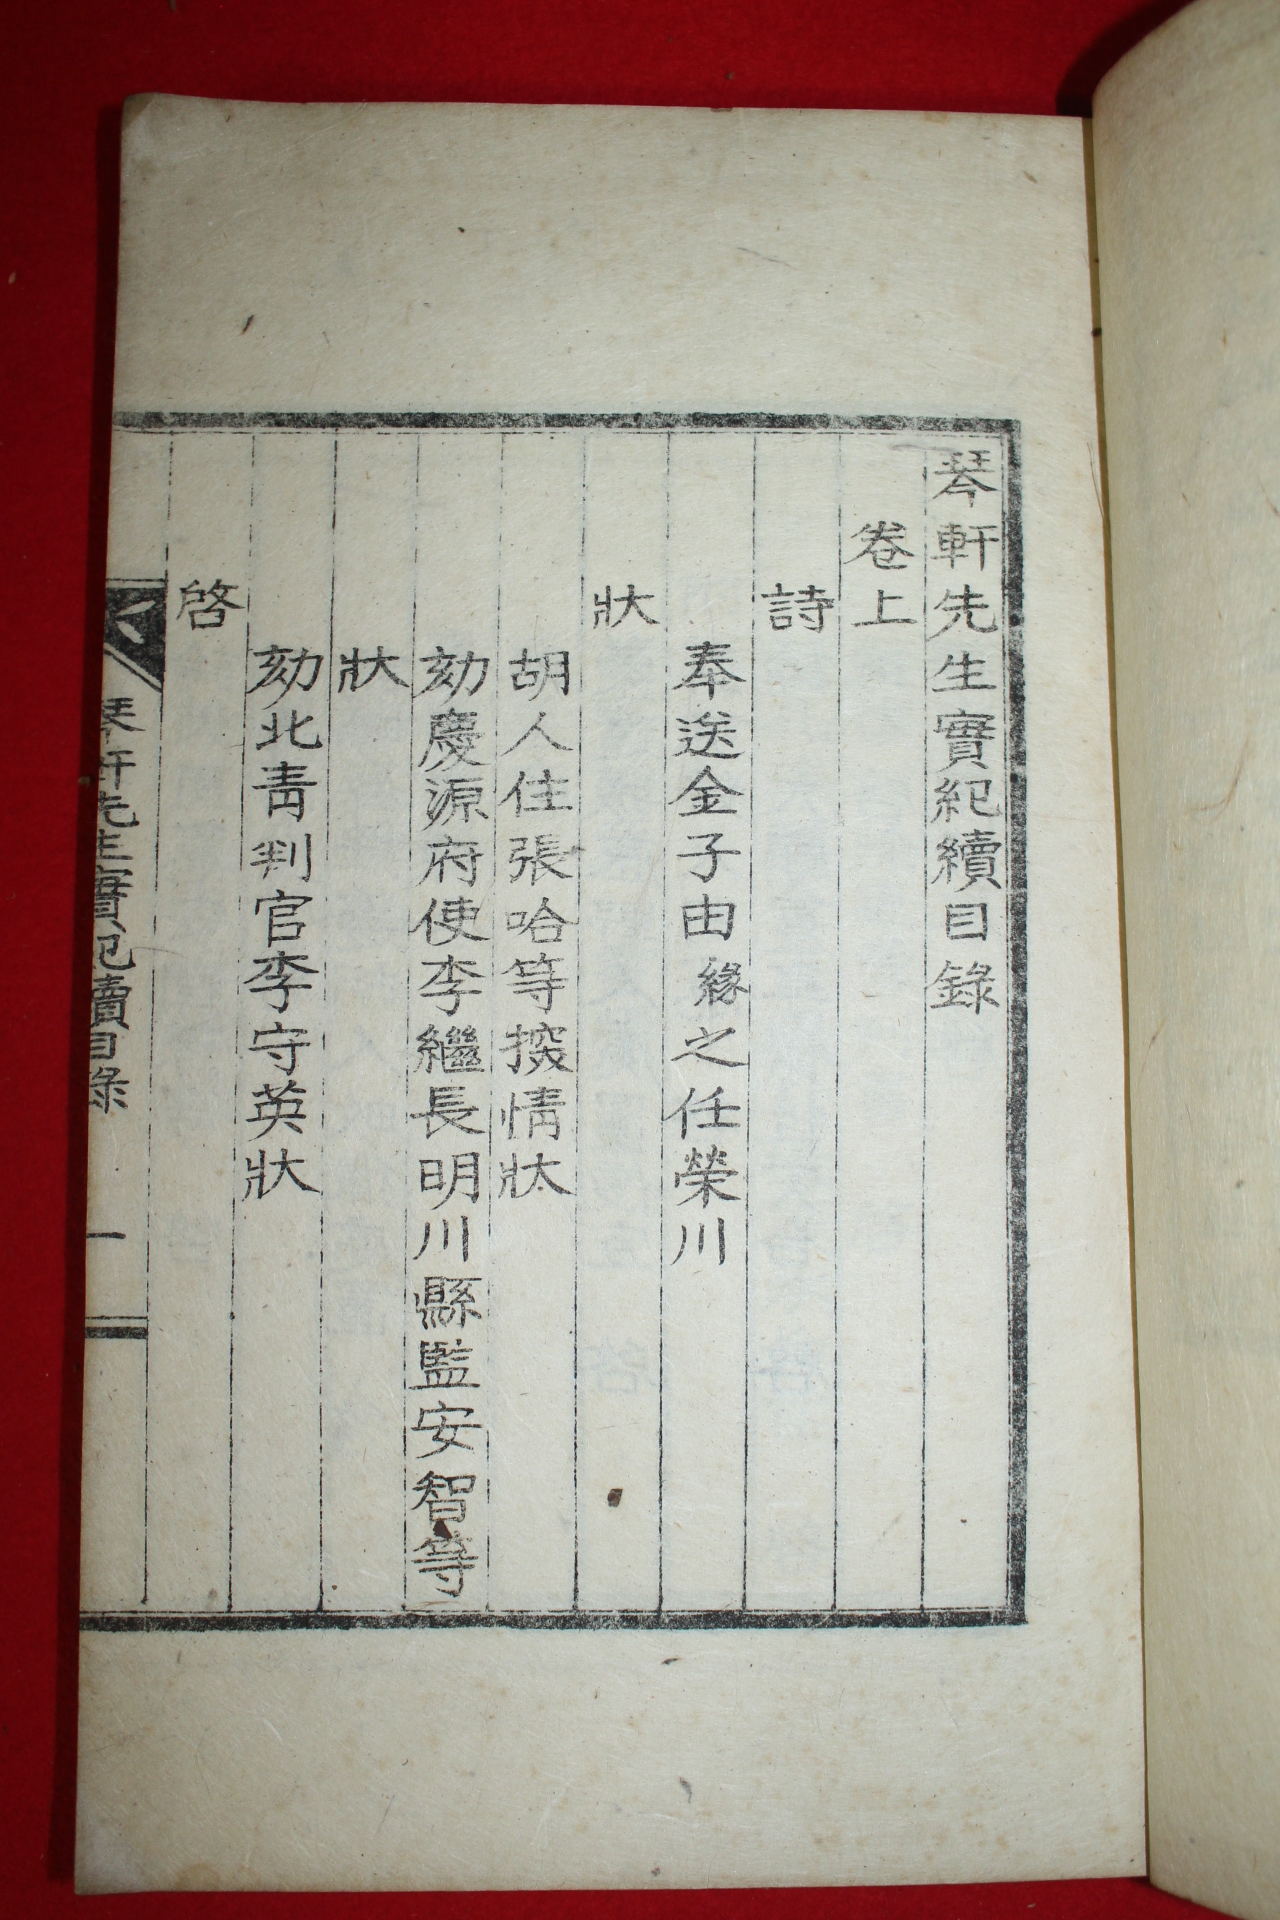 琴軒先生實紀續目錄
卷上
詩
奉送金子由緣之任榮川
狀
胡人住張哈等探情狀
劾慶源府使李繼長明川縣監安智等
狀
劾北靑判官李守英狀
啓
琴軒先生實紀續目錄 一